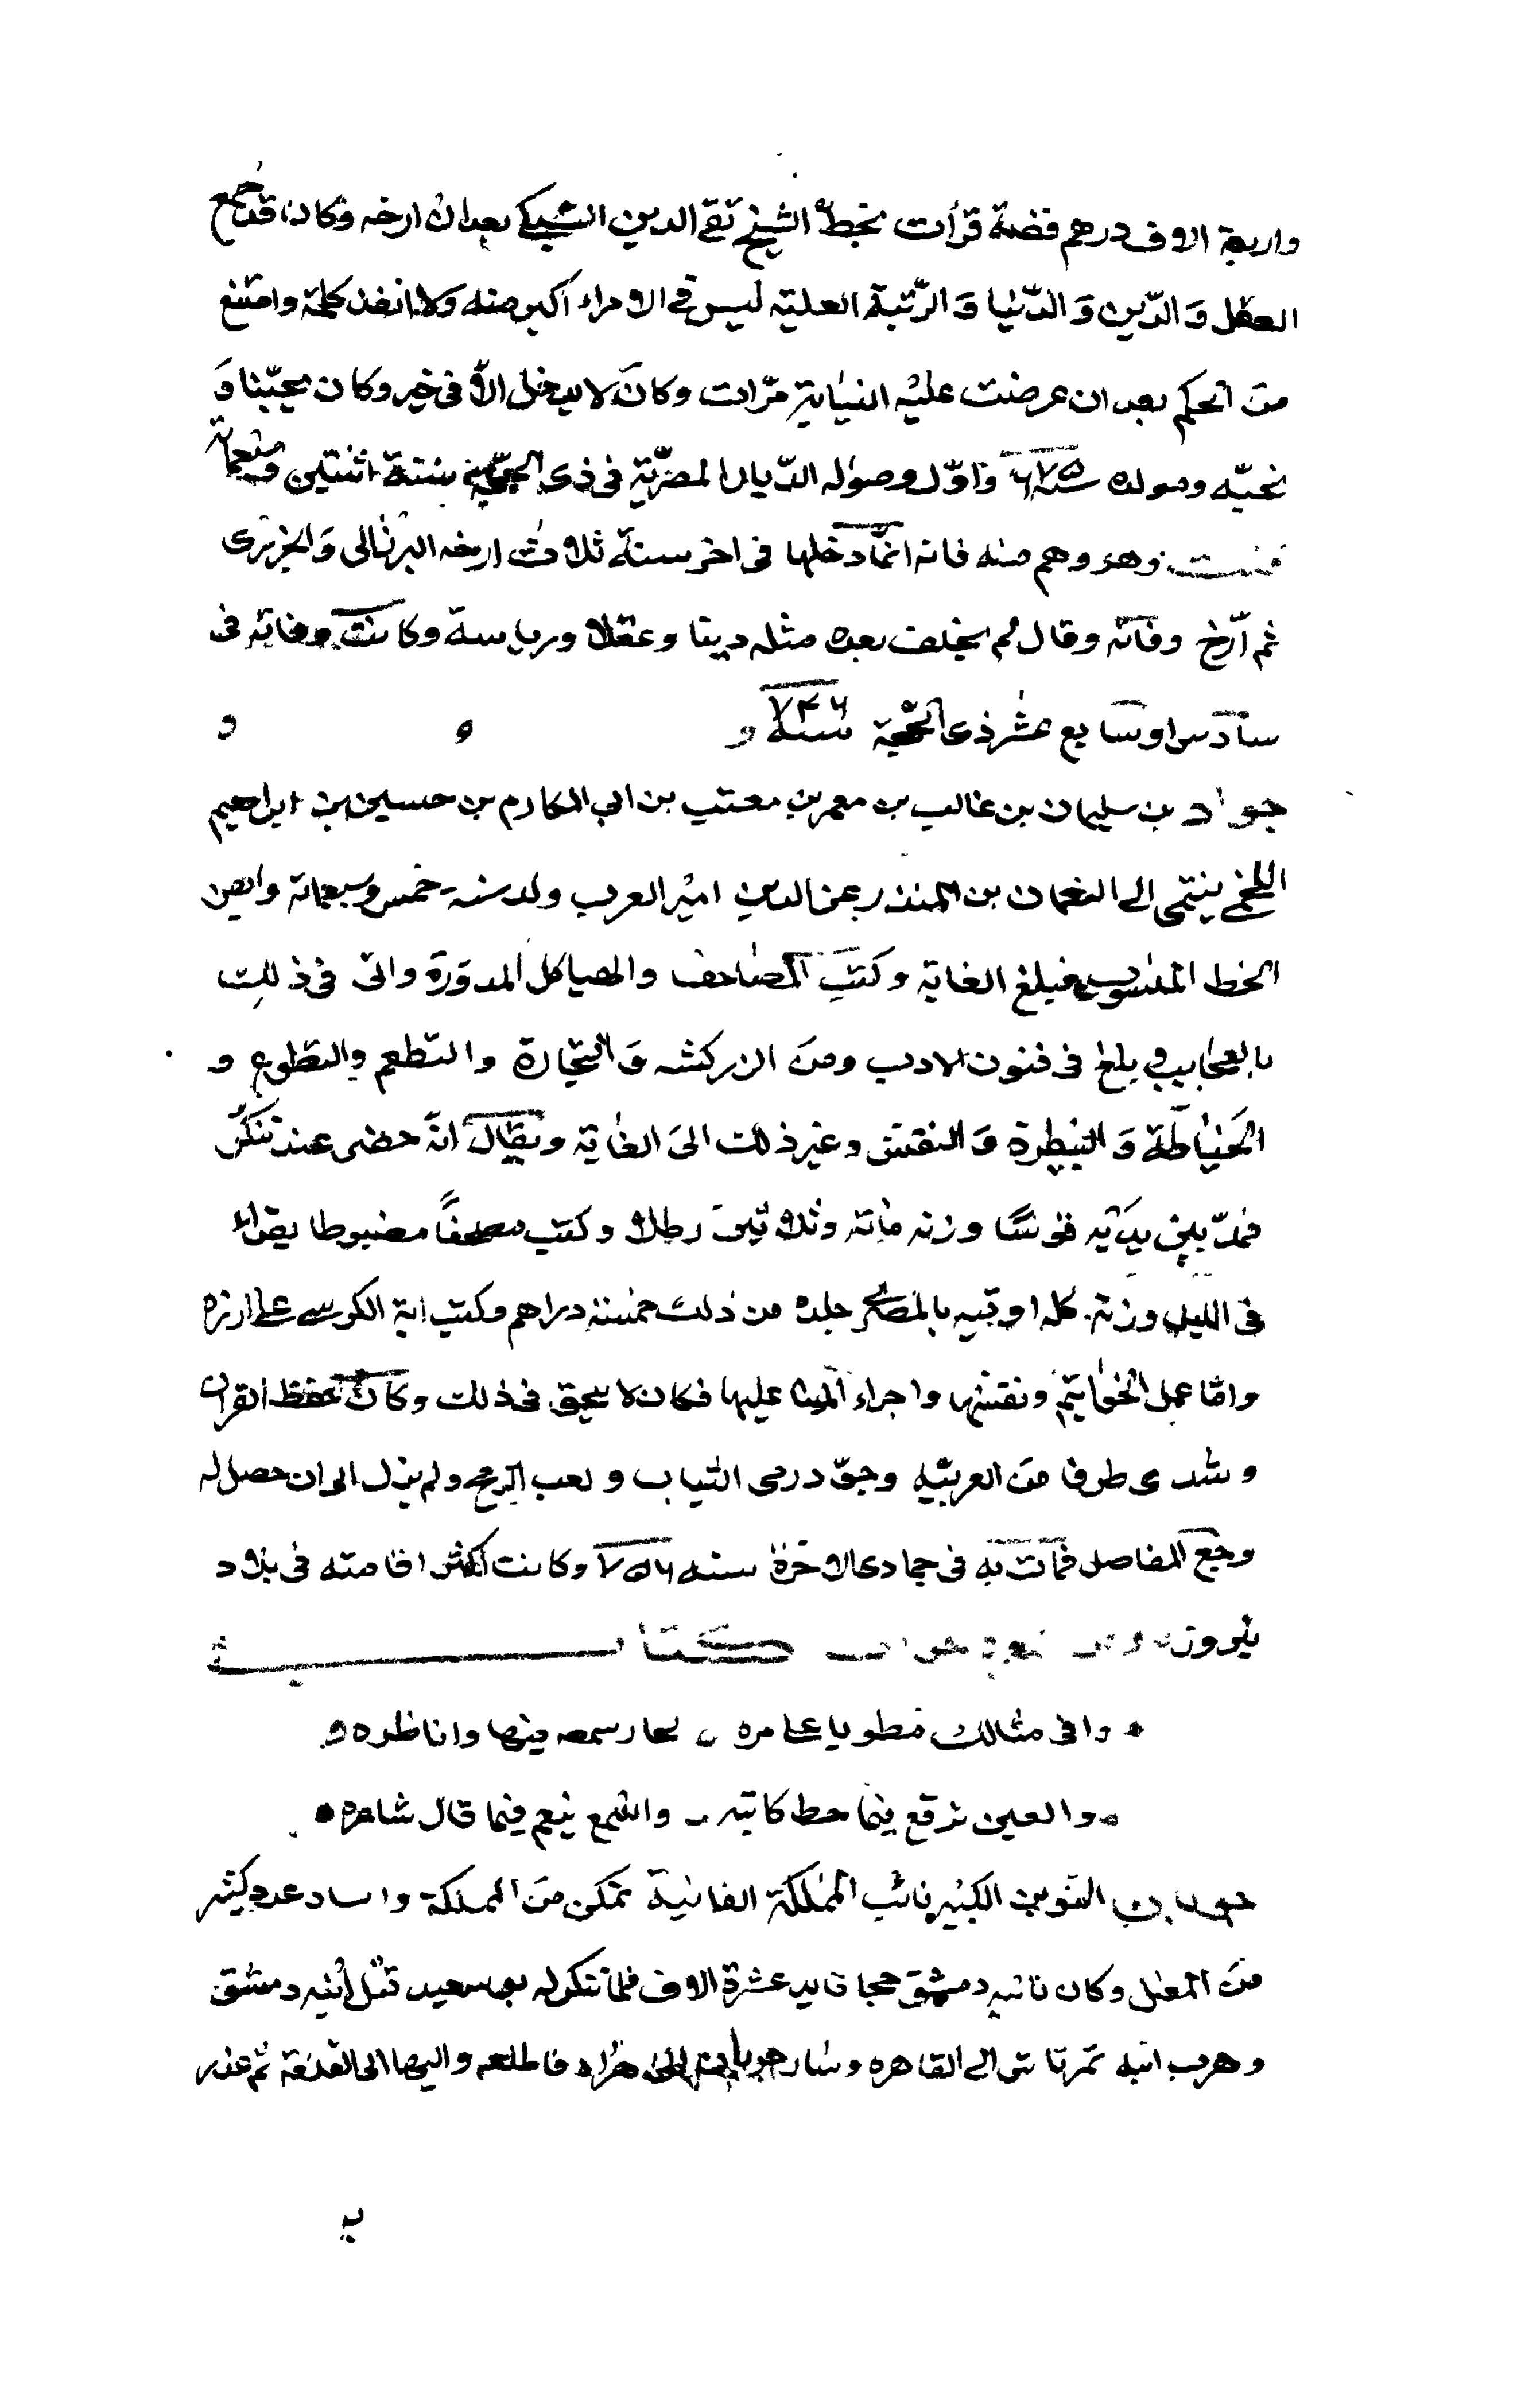 واربعة الاف درهم فضة قرأت بخط الشيخ تقي الدين السبكي بعد ان ارخه وكان قد جمع
العقل وَالدّين وَالدّنيا وَالرّتبة العلية ليس في الامراء اكبر منه ولا انفذ كلمة وامتنع
من الحكم بعد ان عرضت عليْه النيابة مرّات وكانَ لا يدخل الاّ في خير وكان يحبّنا وَ
نحبّه ومولده سنة ٦٧٥ وَاوّل وصوله الدّيار المصريّة في ذي الحجّة سنة اثنتين وسبعمائة
قلت وهو وهم منه فانه انمّا دخلها في اخر سنة ثلاث ارخه البرزالي وَالجزري
ثم أرّخ وفاته وقال لم يخلف بعده مثله دينا وعقلا ورياسة وكانت وفاته في
سادس او سابع عشر ذي الحجّة سنة ٧٣٦
جواد بن سليمان بن غالب بن معمر بن معتب بن ابي المكارم بن حسين بن ابراهيم
اللخمي ينتمى الى النعمان بن المنذر عز الدين امير العرب ولد سنة خمس وسبعمائة واتقن
الخط المنسوب فبلغ الغاية وكتبَ المصاحف والهياكل المدوّرة واتى في ذلك
بالعجايب وبلغ في فنون الادب ومنَ الزركشه وَالنجّارة والتطعم والتطوع و
الخيَاطة وَالبيطرة وَالنقش وغير ذلك الىَ الغاية ويقال انّه حضر عند تنكز
فمدّ بين يدَيه قوسًا وزنه مائة وثلاثينَ رطلا وكتب مصحفًا مضبوطا يقرأ
في الليل وزنه كله اوقيه بالمصري جلده من ذلك خمسة دراهم وكتب اية الكرسى على ارزه
وامّا عمل الخواتيم ونقشها واجراء المينا عليها فكان لا يلحق في ذلك وكانَ حفظ القران
وشدى طرفا من العربيّه وجوّد رمى النشاب ولعب الرمح ولم يزل الى ان حصل له
وجع المفاصل فمات به في جمادى الاخرة سنه ٧٥٦ وكانت اكثر اقامته في بلاد
بيروت
وافى مثالك مطويا على نزه يحار سمعه فيها وناظره
والعين ترتع فيما خط كاتبه والسمع ينعم فيما قال شاعره
جوبان النّوين الكبير نائب المملكة القانيّة تمكن منَ المملكة واباد عدد كثير
منَ المغل وكان ابنه دمشق خجا قايد عشرة الاف فلما تنكر له بوسعيد قتل ابنه دمشق
وهرب ابنه تمرتاش الى القاهره وسار جوبان الى هراه فاطلعه واليها الى القلعة ثم غدر
به